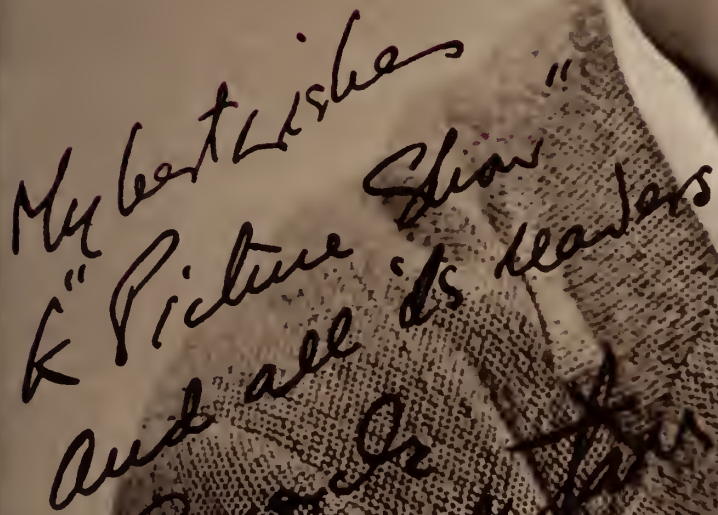 My best wishes
to "Picture Show"
and all its readers